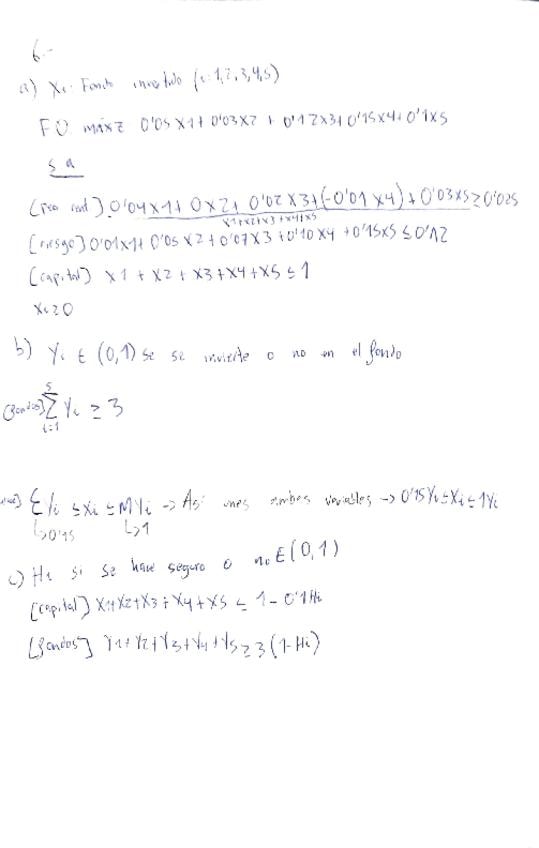 6.-
a) Xi: Fondo invertido (i=1,2,3,4,5)
FO máx z 0'05 X1 + 0'03 X2 + 0'12 X3 + 0'15 X4 + 0'1 X5
s a
0'04 X1 + 0 X2 + 0'02 X3 + (-0'01 X4) + 0'03 X5 ≥ 0'025
X1+X2+X3+X4+X5
[riesgo] 0'01 X1 + 0'05 X2 + 0'07 X3 + 0'10 X4 + 0'15 X5 ≤ 0'12
[capital] X1 + X2 + X3 + X4 + X5 ≤ 1
Xi ≥ 0
b) Yi ∈ (0,1) se se invierte o no en el fondo
5
[Fondos] Σ Yi ≥ 3
i=1
Σ Yi ≤ Xi ≤ M Yi -> Así unes ambas variables -> 0'15 Yi ≤ Xi ≤ 1 Yi
↳ 0'15 ↳ 1
c) Hi si se hace seguro o no ∈ (0,1)
[capital] X1 + X2 + X3 + X4 + X5 ≤ 1 - 0'1 Hi
[Fondos] Y1 + Y2 + Y3 + Y4 + Y5 ≥ 3 (1 - Hi)